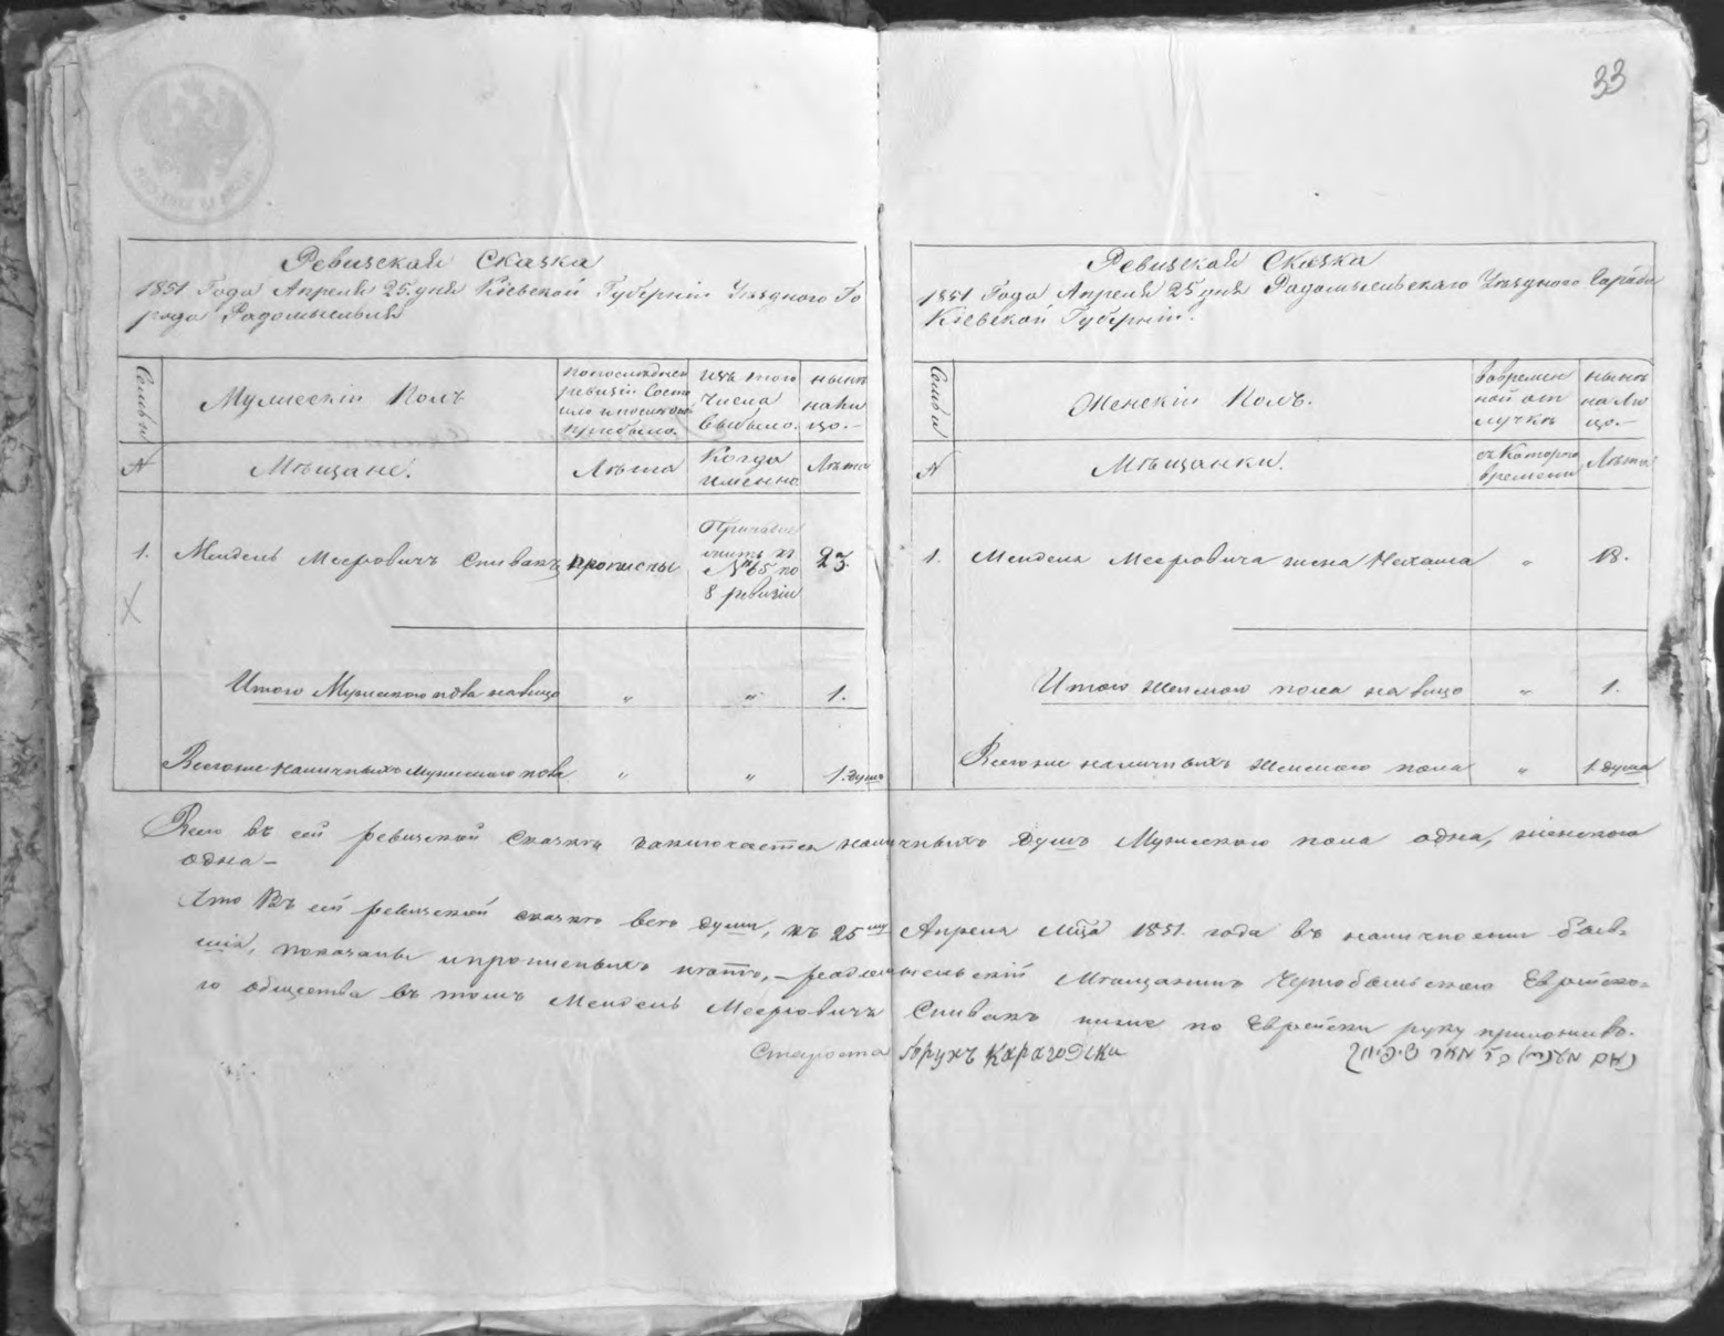 33
Ревизская Сказка
1851 Года Апреля 25 дня Кіевской Губерніи Уѣзднаго Го
рода Радомысля
Семьи
Мужескій Полъ
по последней
ревизіи Состо
яло и после оной
прибыло.
изъ того
числа
выбыло.
нынѣ
на ли
цо.-
№
Мѣщане.
Лѣта
Когда
именно
Лѣта
1.
Мендель Мееровичъ Спивакъ
прописны
Причис
лить къ
№ 65 по
8 ревизіи
23
Итого Мужескаго пола на лицо
"
"
1.
Всего же наличныхъ мужескаго пола
"
"
1. душъ
Ревизская Сказка
1851 Года Апреля 25 дня Радомысльскаго Уѣзднаго Города
Кіевской Губерніи.
Семьи
Женскій Полъ.
во времен
ной от
лучкѣ
нынѣ
на ли
цо.-
№
Мѣщанки.
съ Котораго
времени
Лѣта
1.
Менделя Мееровича жена Нехама
"
18.
Итого женскаго пола на лицо
"
1.
Всего же наличныхъ женскаго пола
"
1 душа
Всего въ сей ревизской Сказкѣ заключается наличныхъ душъ Мужескаго пола одна, женскаго
одна -
Что Въ сей ревизской сказкѣ всѣ души, къ 25му Апреля Мца 1851. года въ наличности быв-
шія, показаны и прописныхъ нетъ, - радомысльскій Мѣщанинъ Чернобыльскаго Еврейска-
го общества въ томъ Мендель Мееровичъ Спивакъ ниже по Еврейски руку приложилъ.
Староста Борухъ Карагодски